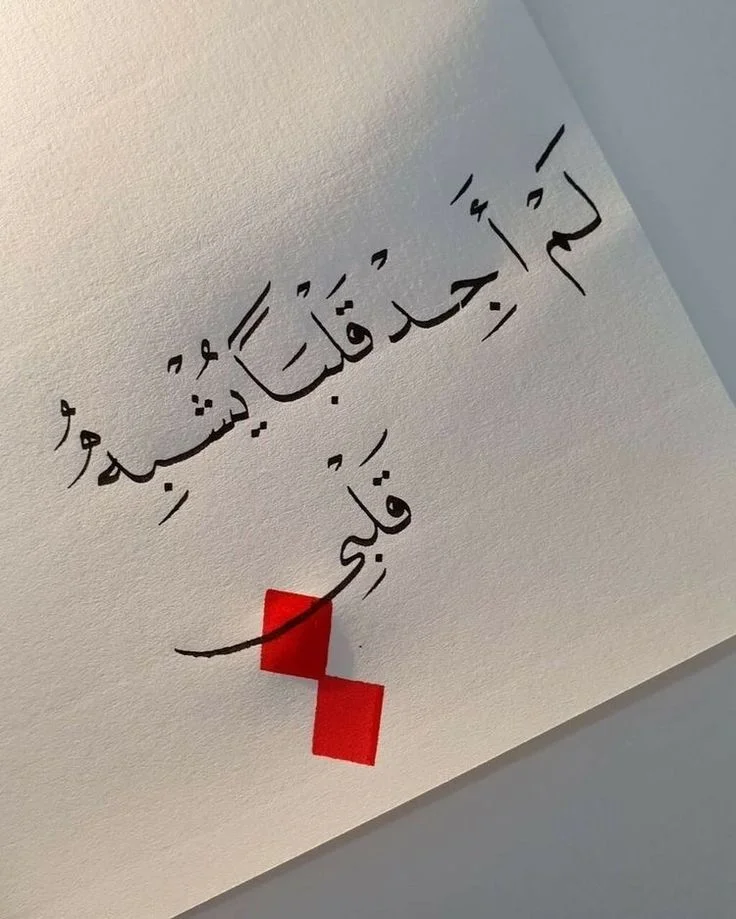 لَمْ أَجِدْ قَلْبَاً يُشْبِهُ
قَلْبِي